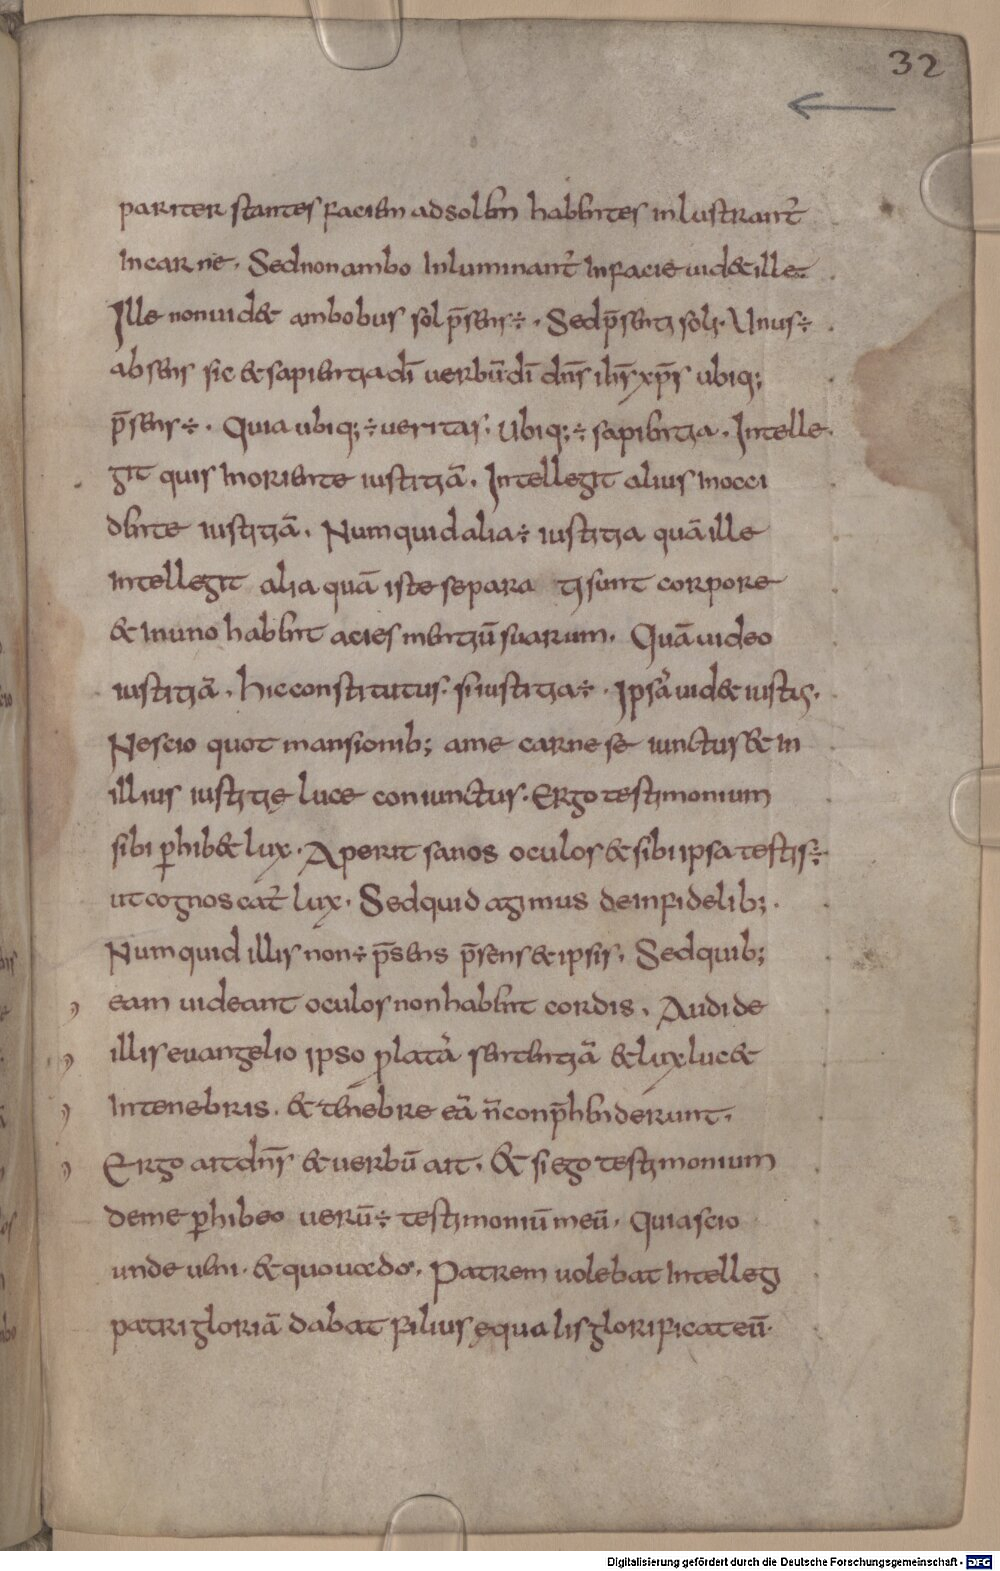 32
pariter stantes faciem ad solem habentes inlustrant᷑
in carne. Sed non ambo inluminant᷑ in facie uidet ille
Ille non uidet ambobus sol p̄sens ÷. Sed p̄senti soli. Unus ÷
absens sic & sapientia dī uerbū dī dn̄s ih̄s xp̄s ubiq;
p̄sens ÷. Quia ubiq; ÷ ueritas. Ubiq; ÷ sapientia. Intelle
git quis in oriente iustitiā. Intellegit alius in occi
dente iustitiā. Numquid alia ÷ iustitia quā ille
intellegit alia quā iste separa ti sunt corpore
& in uno habent acies mentiū suarum. Quā uideo
iustitiā. hic constitutus. si iustitia ÷. Ipsā uidet iustis.
Nescio quot mansionib; a me carne se iunctus & in
illius iustitię luce coniunctus. Ergo testimonium
sibi ꝑhibet lux. Aperit sanos oculos & sibi ipsa testis ÷
ut cognoscat᷑ lux. Sed quid agimus de infidelib;.
Numquid illis non ÷ p̄sens p̄sens & ipsis. Sed quib;
eam uideant oculos non habent cordis. Audi de
illis euangelio ipso ꝓlatā sententiā & lux lucet
in tenebris. & tenebre eā n̄ conp̄henderunt.
Ergo ait dn̄s & uerbū ait. & si ego testimonium
de me ꝑhibeo uerū ÷ testimoniū meū. Quia scio
unde ueni. & quo uado. Patrem uolebat intelleg
patri gloriā dabat filius equalis glorificat eū.
Digitalisierung gefördert durch die Deutsche Forschungsgemeinschaft - DFG